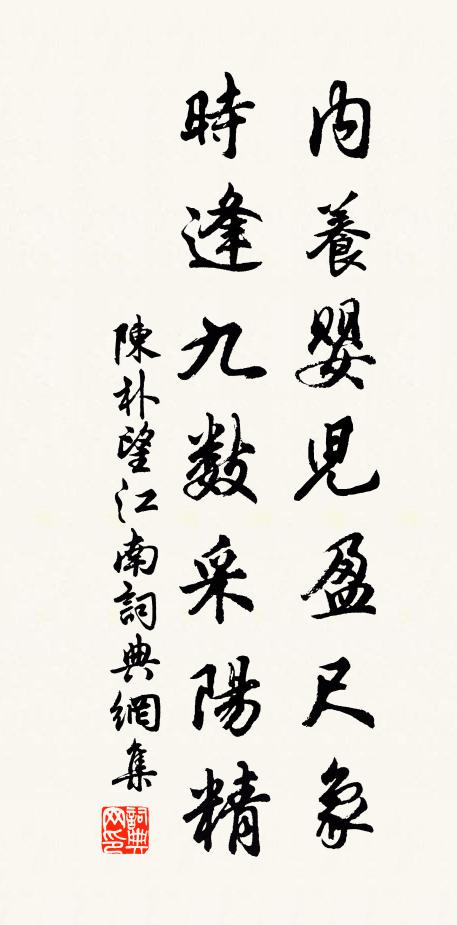 內養嬰児盈尺象
時逢九数采陽精
陳朴望江南詞典網集
詞典網印